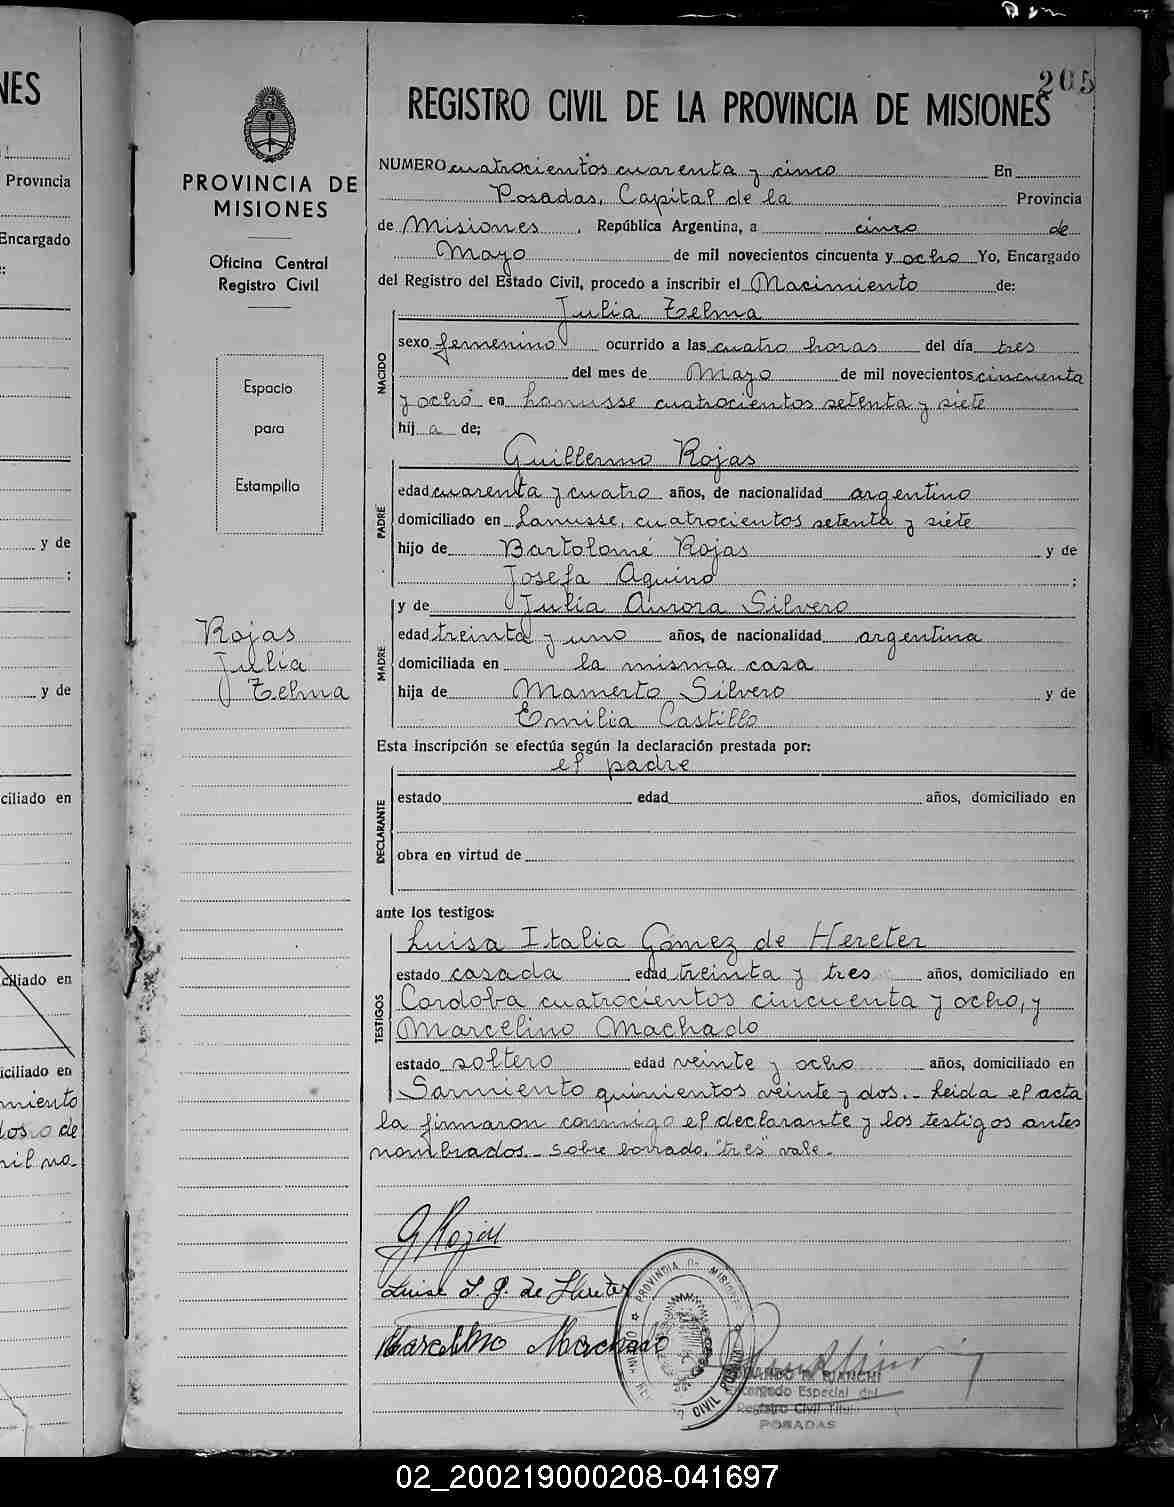 205
NES
REGISTRO CIVIL DE LA PROVINCIA DE MISIONES
PROVINCIA DE
MISIONES
Oficina Central
Registro Civil
Espacio
para
Estampilla
Rojas
Julia
Zelma
Provincia
Encargado
y de
;
y de
ciliado en
ciliado en
iciliado en
miento
de
mil no-
NUMERO cuatrocientos cuarenta y cinco En
Posadas, Capital de la Provincia
de Misiones, República Argentina, a cinco de
Mayo de mil novecientos cincuenta y ocho Yo, Encargado
del Registro del Estado Civil, procedo a inscribir el Nacimiento de:
Julia Zelma
NACIDO
sexo femenino ocurrido a las cuatro horas del día tres
del mes de Mayo de mil novecientos cincuenta
y ocho en Lanusse cuatrocientos setenta y siete
hij a de;
Guillermo Rojas
PADRE
edad cuarenta y cuatro años, de nacionalidad argentino
domiciliado en Lanusse, cuatrocientos setenta y siete
hijo de Bartolomé Rojas y de
Josefa Aquino ;
y de Julia Aurora Silvero
MADRE
edad treinta y uno años, de nacionalidad argentina
domiciliada en la misma casa
hija de Mamerto Silvero y de
Emilia Castillo
Esta inscripción se efectúa según la declaración prestada por:
el padre
DECLARANTE
estado edad años, domiciliado en
obra en virtud de
ante los testigos:
Luisa Italia Gómez de Hereter
TESTIGOS
estado casada edad treinta y tres años, domiciliado en
Cordoba cuatrocientos cincuenta y ocho, y
Marcelino Machado
estado soltero edad veinte y ocho años, domiciliado en
Sarmiento quinientos veinte y dos.- Leida el acta
la firmaron conmigo el declarante y los testigos antes
nombrados.- Sobre borrado, "tres" vale.-
G Rojas
Luisa I. G. de Hereter
Marcelino Machado
PROVINCIA DE MISIONES
CIVIL POSADAS
BIANCHI
Encargado Especial del
Registro Civil
POSADAS
02_200219000208-041697